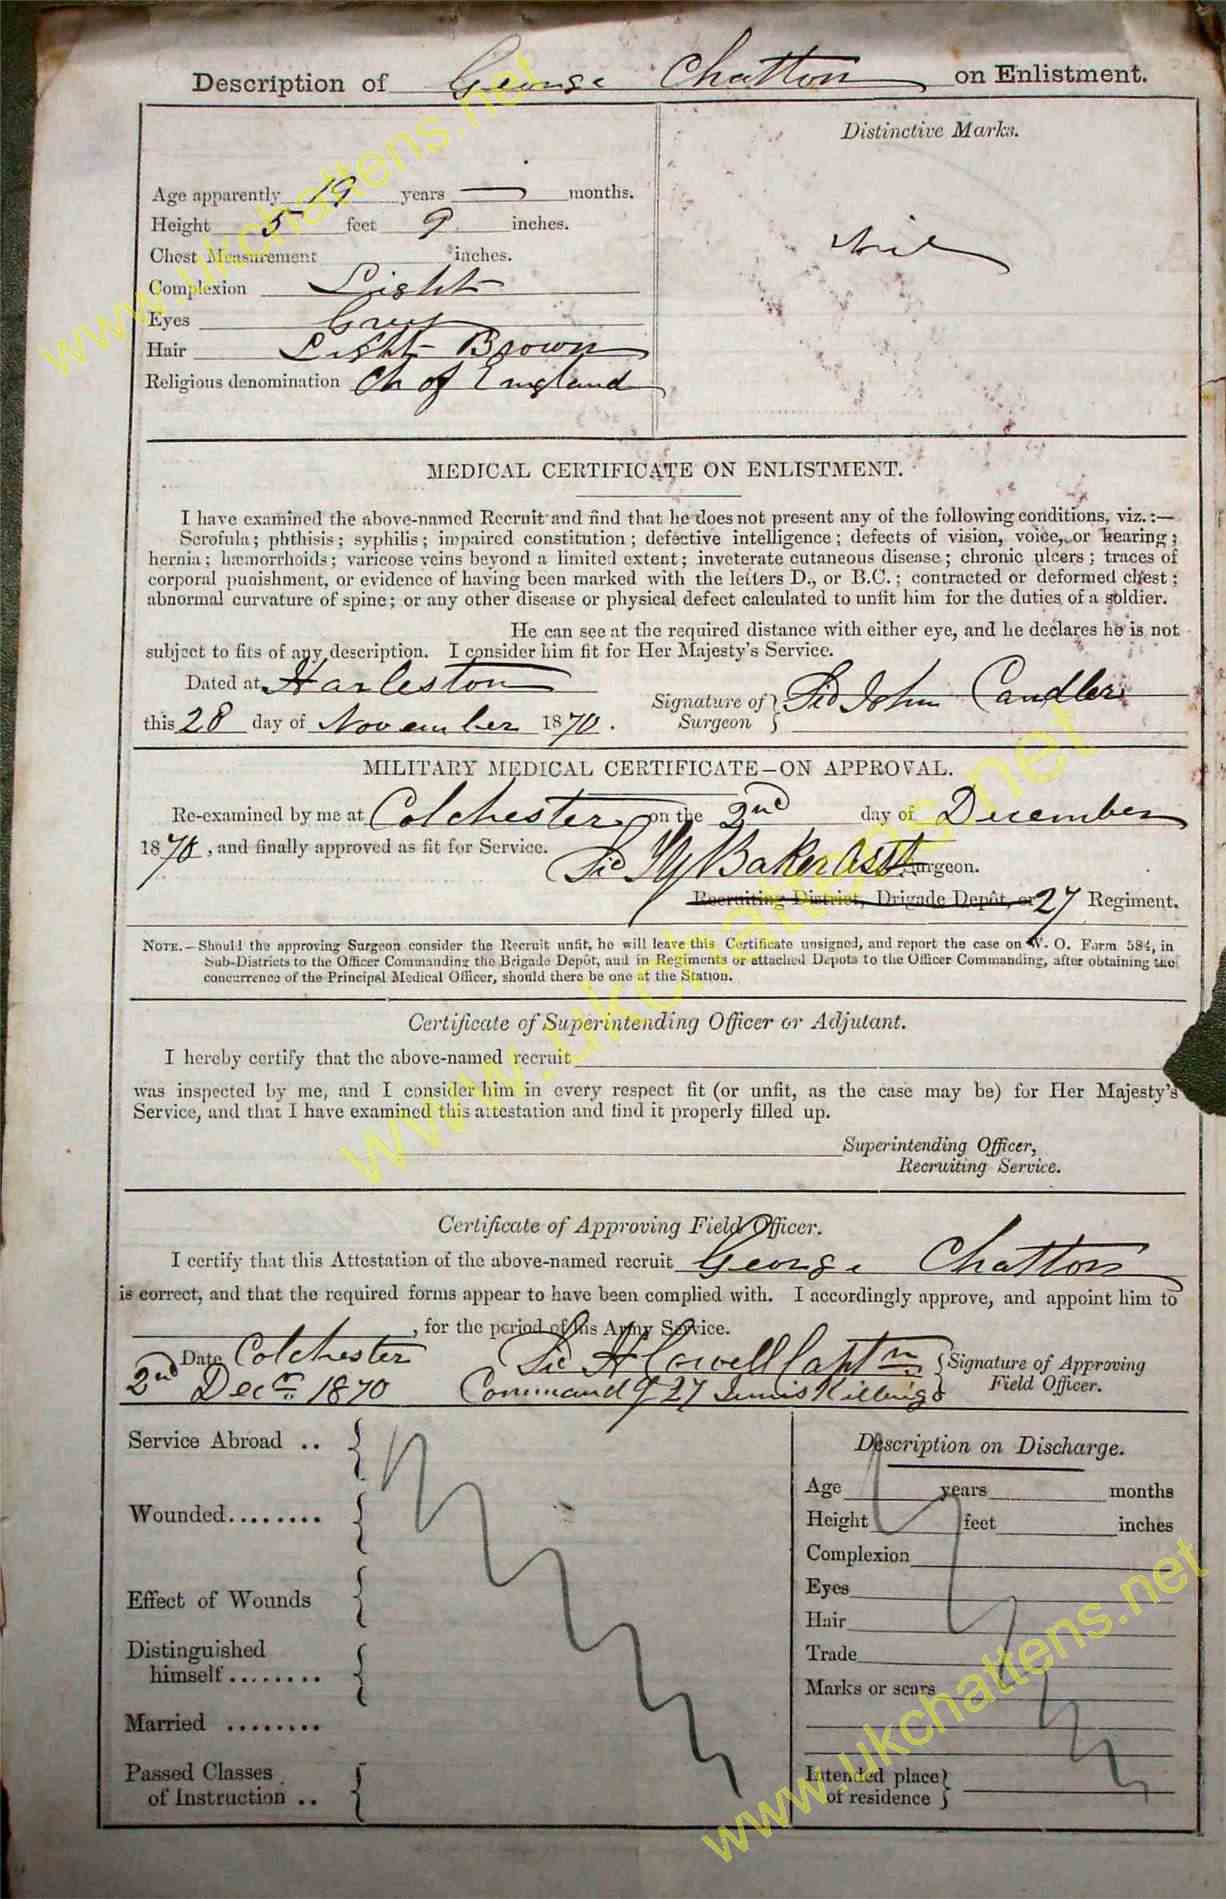 Description of George Chatton on Enlistment.
Distinctive Marks.
Age apparently 19 years — months.
Height 5 feet 9 inches.
Nil
Chest Measurement inches.
Complexion Light
Eyes Grey
Hair Light Brown
Religious denomination Ch of England
MEDICAL CERTIFICATE ON ENLISTMENT.
I have examined the above-named Recruit and find that he does not present any of the following conditions, viz.:—
Scrofula; phthisis; syphilis; impaired constitution; defective intelligence; defects of vision, voice, or hearing;
hernia; hæmorrhoids; varicose veins beyond a limited extent; inveterate cutaneous disease; chronic ulcers; traces of
corporal punishment, or evidence of having been marked with the letters D., or B.C.; contracted or deformed chest;
abnormal curvature of spine; or any other disease or physical defect calculated to unfit him for the duties of a soldier.
He can see at the required distance with either eye, and he declares he is not
subject to fits of any description. I consider him fit for Her Majesty's Service.
Dated at Harleston
Signature of Surgeon } Sid John Candler
this 28 day of November 1870.
MILITARY MEDICAL CERTIFICATE—ON APPROVAL.
Re-examined by me at Colchester on the 2nd day of December
1870, and finally approved as fit for Service.
Sid Baker Asst Surgeon.
Recruiting District, Brigade Depôt, or 27 Regiment.
NOTE.—Should the approving Surgeon consider the Recruit unfit, he will leave this Certificate unsigned, and report the case on W. O. Form 584, in
Sub-Districts to the Officer Commanding the Brigade Depôt, and in Regiments or attached Depots to the Officer Commanding, after obtaining the
concurrence of the Principal Medical Officer, should there be one at the Station.
Certificate of Superintending Officer or Adjutant.
I hereby certify that the above-named recruit
was inspected by me, and I consider him in every respect fit (or unfit, as the case may be) for Her Majesty's
Service, and that I have examined this attestation and find it properly filled up.
Superintending Officer,
Recruiting Service.
Certificate of Approving Field Officer.
I certify that this Attestation of the above-named recruit George Chatton
is correct, and that the required forms appear to have been complied with. I accordingly approve, and appoint him to
, for the period of his Army Service.
Date Colchester
Sid H Cowell Captn
2nd Decr 1870
Command g 27 Inniskillings
{ Signature of Approving
Field Officer.
Service Abroad ..
Wounded........
Effect of Wounds
Distinguished
himself........
Married ........
Passed Classes
of Instruction ..
Description on Discharge.
Age years months
Height feet inches
Complexion
Eyes
Hair
Trade
Marks or scars
Intended place
of residence
www.ukchattens.net
www.ukchattens.net
www.ukchattens.net